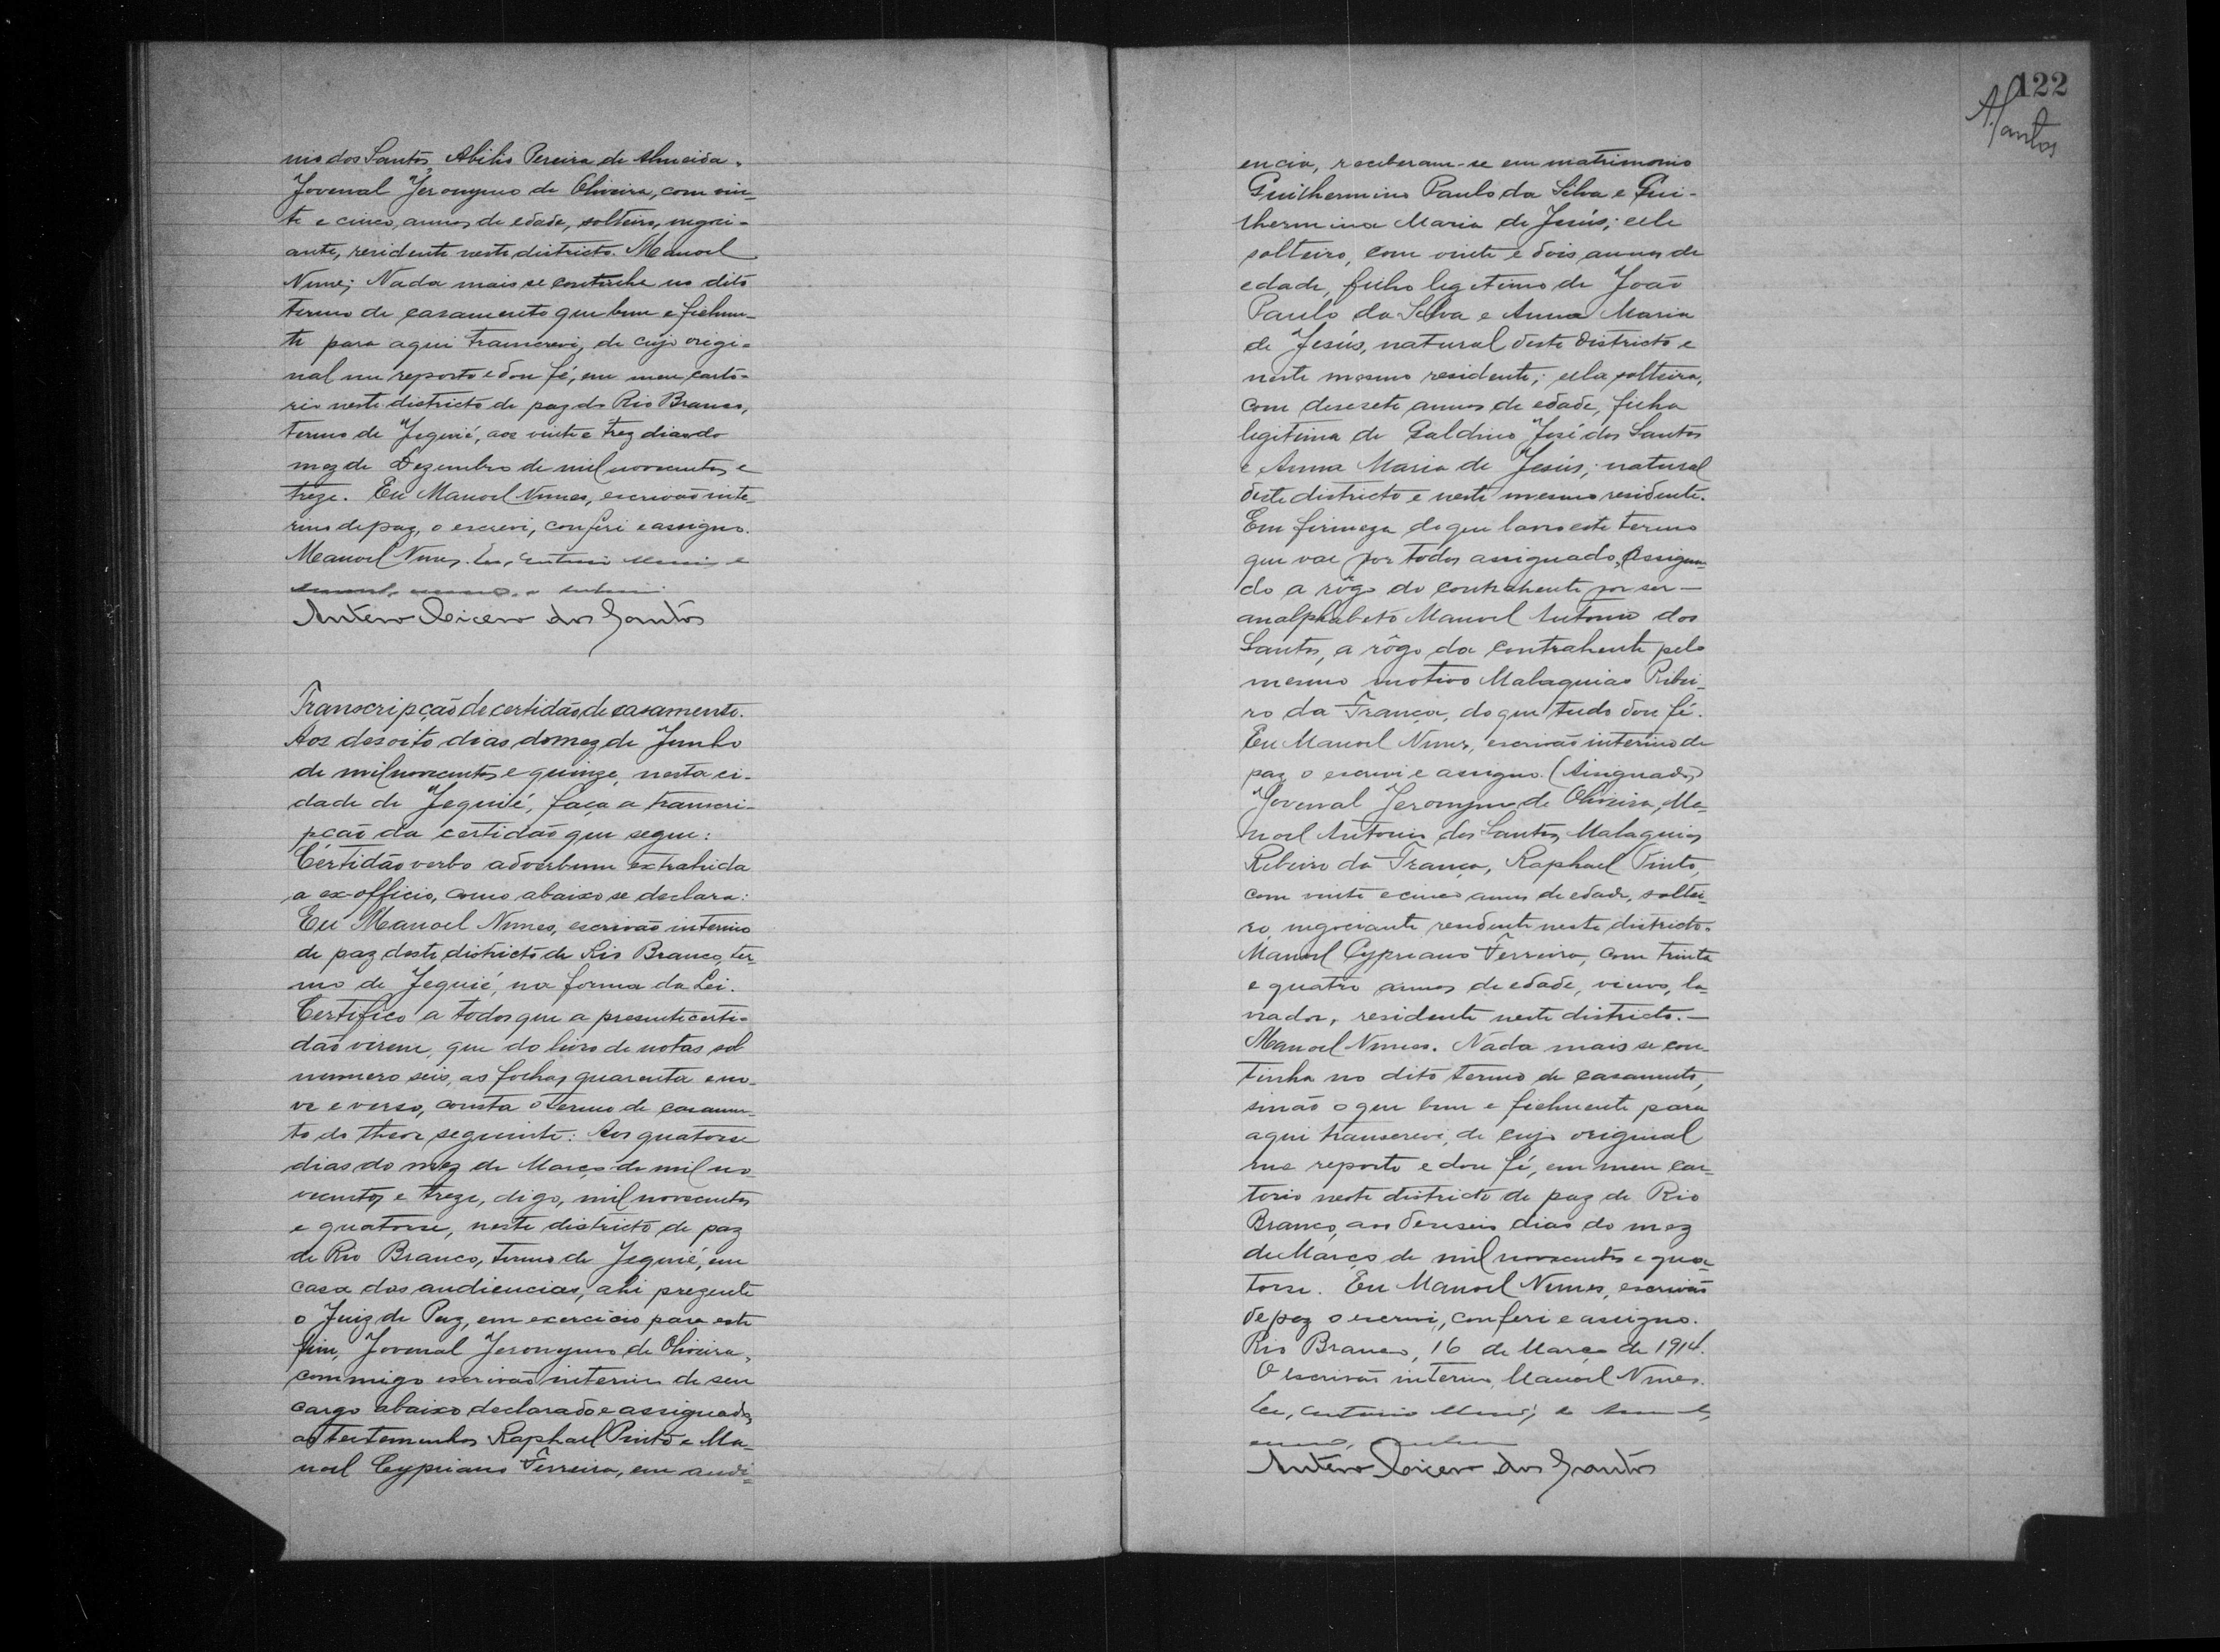 nio dos Santos, Abilio Pereira de Almeida.
Jovenal Jeronymo de Oliveira, com vin-
te e cinco annos de edade, solteiro, negoci-
ante, residente neste districto. Manoel
Nunes; Nada mais se continha no dito
termo de casamento que bem e fielmen-
te para aqui transcrevi, de cujo origi-
nal me reporto e dou fé, em meu carto-
rio neste districto de paz do Rio Branco,
termo de Jequié, aos vinte e trez dias do
mez de Dezembro de mil novecentos e
treze. Eu Manoel Nunes, escrivão inte-
rino de paz, o escrevi, conferi e assigno.
Manoel Nunes. Eu, Antonio
Antero Cicero dos Santos
Transcripção de certidão de casamento.
Aos desoito dias do mez de Junho
de mil novecentos e quinze, nesta ci-
dade de Jequié, faço a transcri-
pção da certidão que segue:
Certidão verbo adverbum extrahida
a ex-officio, como abaixo se declara:
Eu Manoel Nunes, escrivão interino
de paz deste districto de Rio Branco, ter-
mo de Jequié, na forma da Lei.
Certifico a todos que a presente certi-
dão virem, que do livro de notas sob
numero seis, as folhas quarenta e no-
ve e verso, consta o termo de casamen-
to do theor seguinte: Aos quatorse
dias do mez de Março de mil no-
vecentos e treze, digo, mil novecentos
e quatorse, neste districto de paz
de Rio Branco, termo de Jequié, em
casa das audiencias, ahi prezente
o Juiz de Paz, em exercicio para este
fim, Jovenal Jeronymo de Oliveira,
commigo escrivão interino de seu
cargo abaixo declarado e assignado,
as testemunhas Raphael Pinto e Ma-
noel Cypriano Ferreira, em audi-
122
A Santos
encia, receberam-se em matrimonio
Guilhermino Paulo da Silva e Gui-
lhermina Maria de Jesús; elle
solteiro, com vinte e dois annos de
edade, filho legitimo de João
Paulo da Silva e Anna Maria
de Jesús, natural deste districto e
neste mesmo residente; ella solteira,
com desesete annos de edade, filha
legitima de Galdino José dos Santos
e Anna Maria de Jesús; natural
deste districto e neste mesmo residente.
Em firmeza do que lavro este termo
que vae por todos assignado, assignan-
do a rôgo do contrahente por ser —
analphabeto Manoel Antonio dos
Santos, a rôgo da contrahente pelo
mesmo motivo Malaquias Ribei-
ro da França, do que tudo dou fé.
Eu Manoel Nunes, escrivão interino de
paz o escrevi e assigno. (Assignados)
Jovenal Jeronymo de Oliveira, Ma-
noel Antonio dos Santos, Malaquias
Ribeiro da França, Raphael Pinto,
com vinte e cinco annos de edade, soltei-
ro, negociante residente neste districto.
Manoel Cypriano Ferreira, com trinta
e quatro annos de edade, viuvo, la-
vrador, residente neste districto. —
Manoel Nunes. Nada mais se con-
tinha no dito termo de casamento,
sinão o que bem e fielmente para
aqui transcrevi, de cujo original
me reporto e dou fé, em meu car-
torio neste districto de paz de Rio
Branco, aos deseseis dias do mez
de Março de mil novecentos e qua-
torse. Eu Manoel Nunes, escrivão
de paz o escrevi, conferi e assigno.
Rio Branco, 16 de Março de 1914.
O escrivão interino Manoel Nunes.
Eu, Antonio
Antero Cicero dos Santos